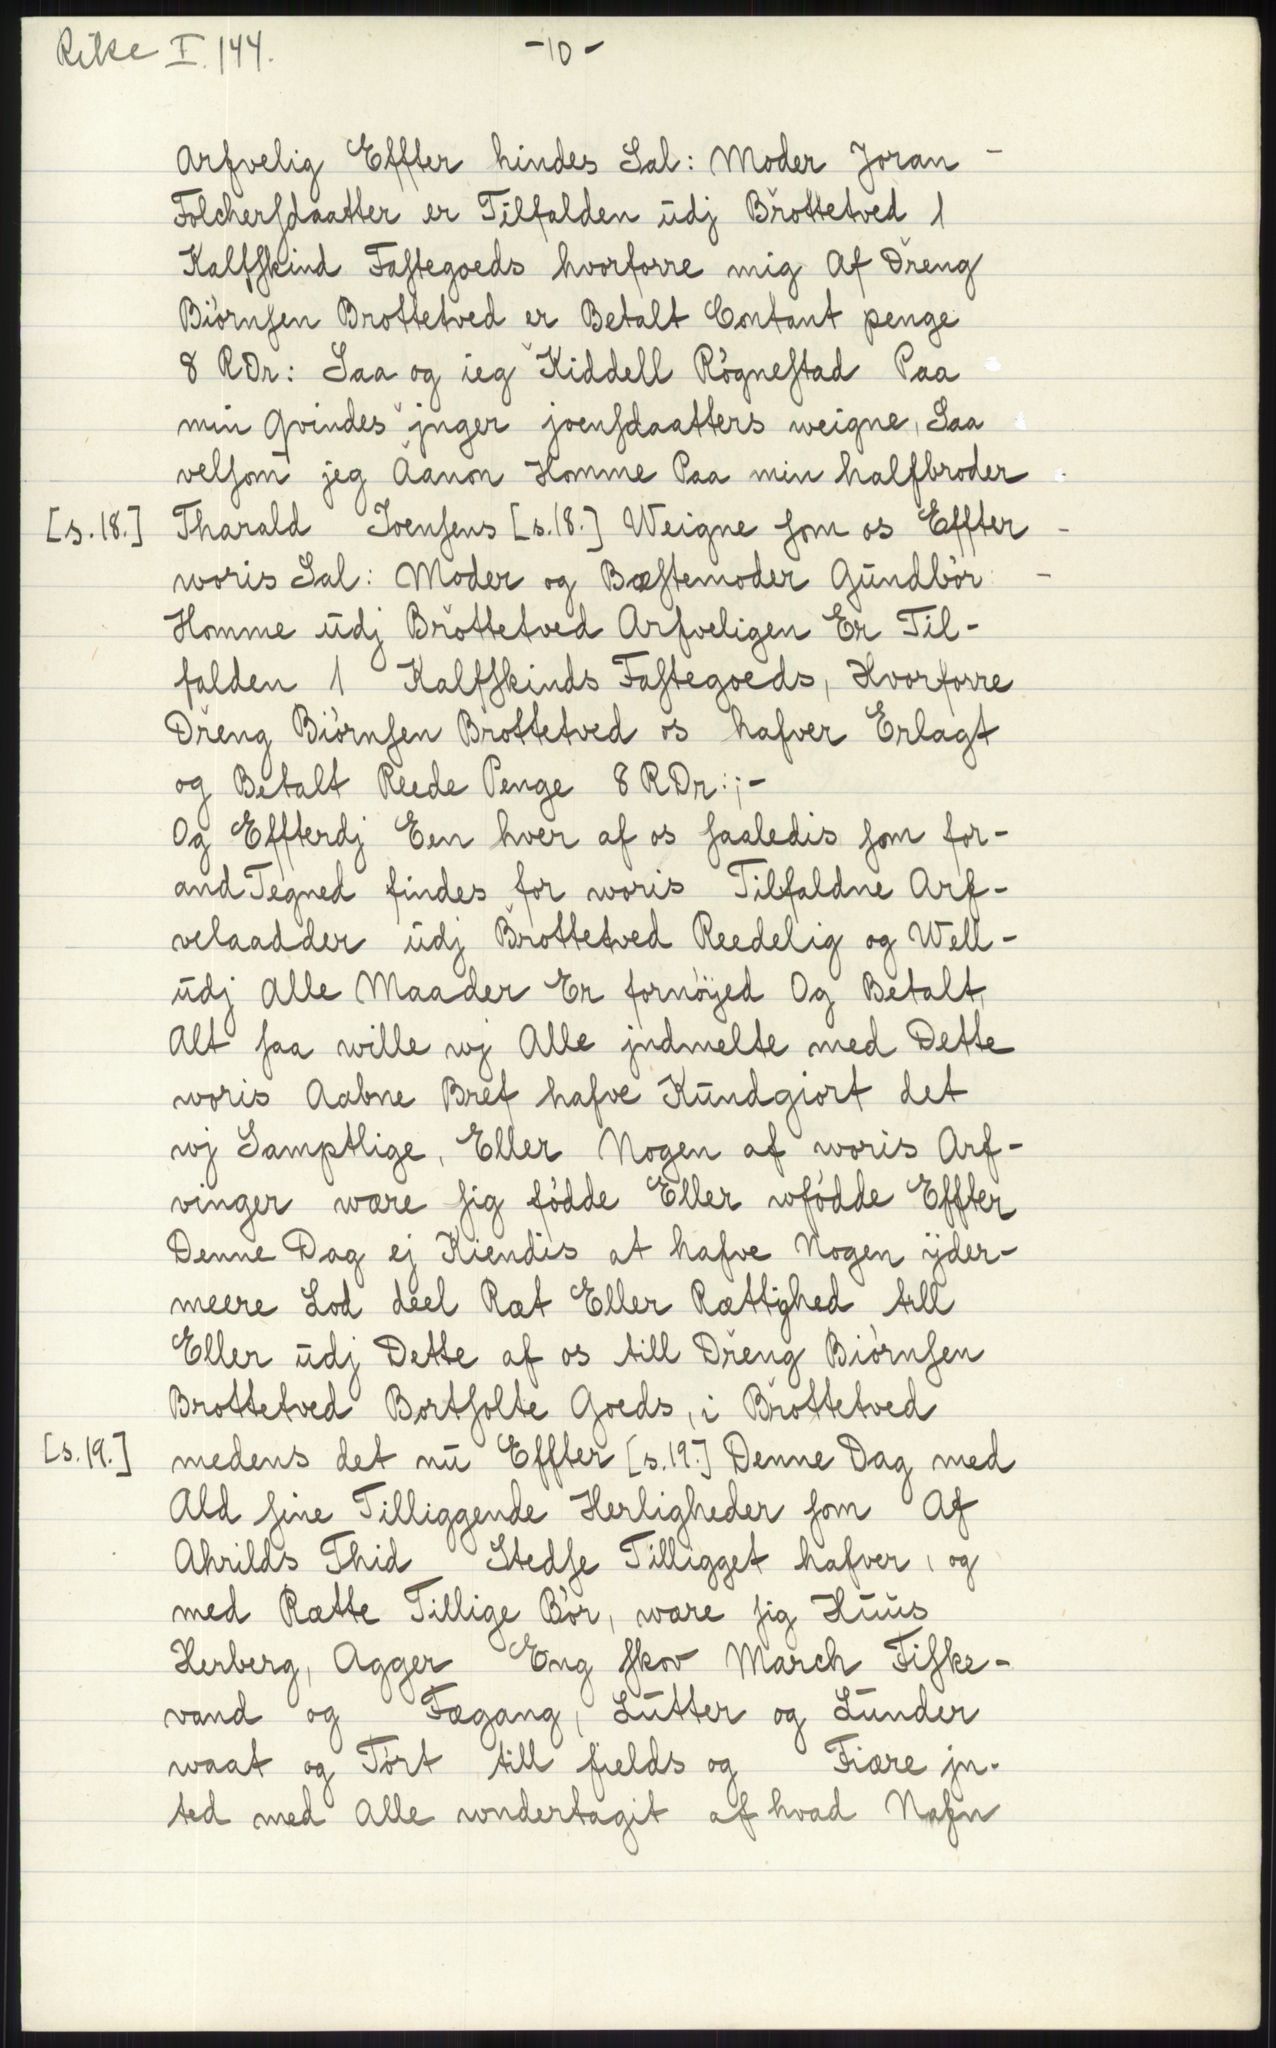 Rike I. 144.
-10-
Arfvelig Effter hindes Sal: Moder Joran -
Folchersdaatter er Tilfalden udj Brottetved 1
Kalfskind Fastegoeds hvorforre mig Af Dreng
Biørnsen Brottetved er Betalt Contant penge
8 RDr: Saa og ieg Kiddell Røgnestad Paa
min Qvindes jnger joensdaatters weigne, Saa
velsom jeg Aanon Homme Paa min halfbroder
[s.18.] Tharald Joensens [s.18.] Weigne som os Effter -
woris Sal: Moder og Bæstemoder Gundbør -
Homme udj Brottetved Arfveligen Er Til-
falden 1 Kalfskinds Fastegoeds, Hvorforre
Dreng Biørnsen Brottetved os hafver Erlagt
og Betalt Reede Penge 8 RDr:;-
Og Effterdj Een hver af os saaledis som for-
and Tegned findes for woris Tilfaldne Arf-
velaadder udj Brottetved Reedelig og Well-
udj Alle Maader Er fornøyed Og Betalt,
Alt saa wille wj Alle jndmelte med Dette
woris Aabne Bref hafve Kundgiort det
wj Samptlige, Eller Nogen af woris Arf-
vinger wære sig fødde Eller wfødde Effter
Denne Dag ej Kiendis at hafve Nogen ÿder-
meere Lod deel Ræt Eller Rættighed till
Eller udj Dette af os till Dreng Biørnsen
Brottetved Bortsolte Goeds, i Brottetved
[s.19.] medens det nu Effter [s.19.] Denne Dag med
Ald sine Tilliggende Herligheder som Af
Ahrilds Thid Stedse Tilligget hafver, og
med Rætte Tillige Bør, ware sig Huus
Herberg, Agger Eng skov March Fiske-
vand og Fægang, Lutter og Lunder
waat og Tørt till fields og Fiære jn-
ted med Alle wndertagit af hvad Nafn